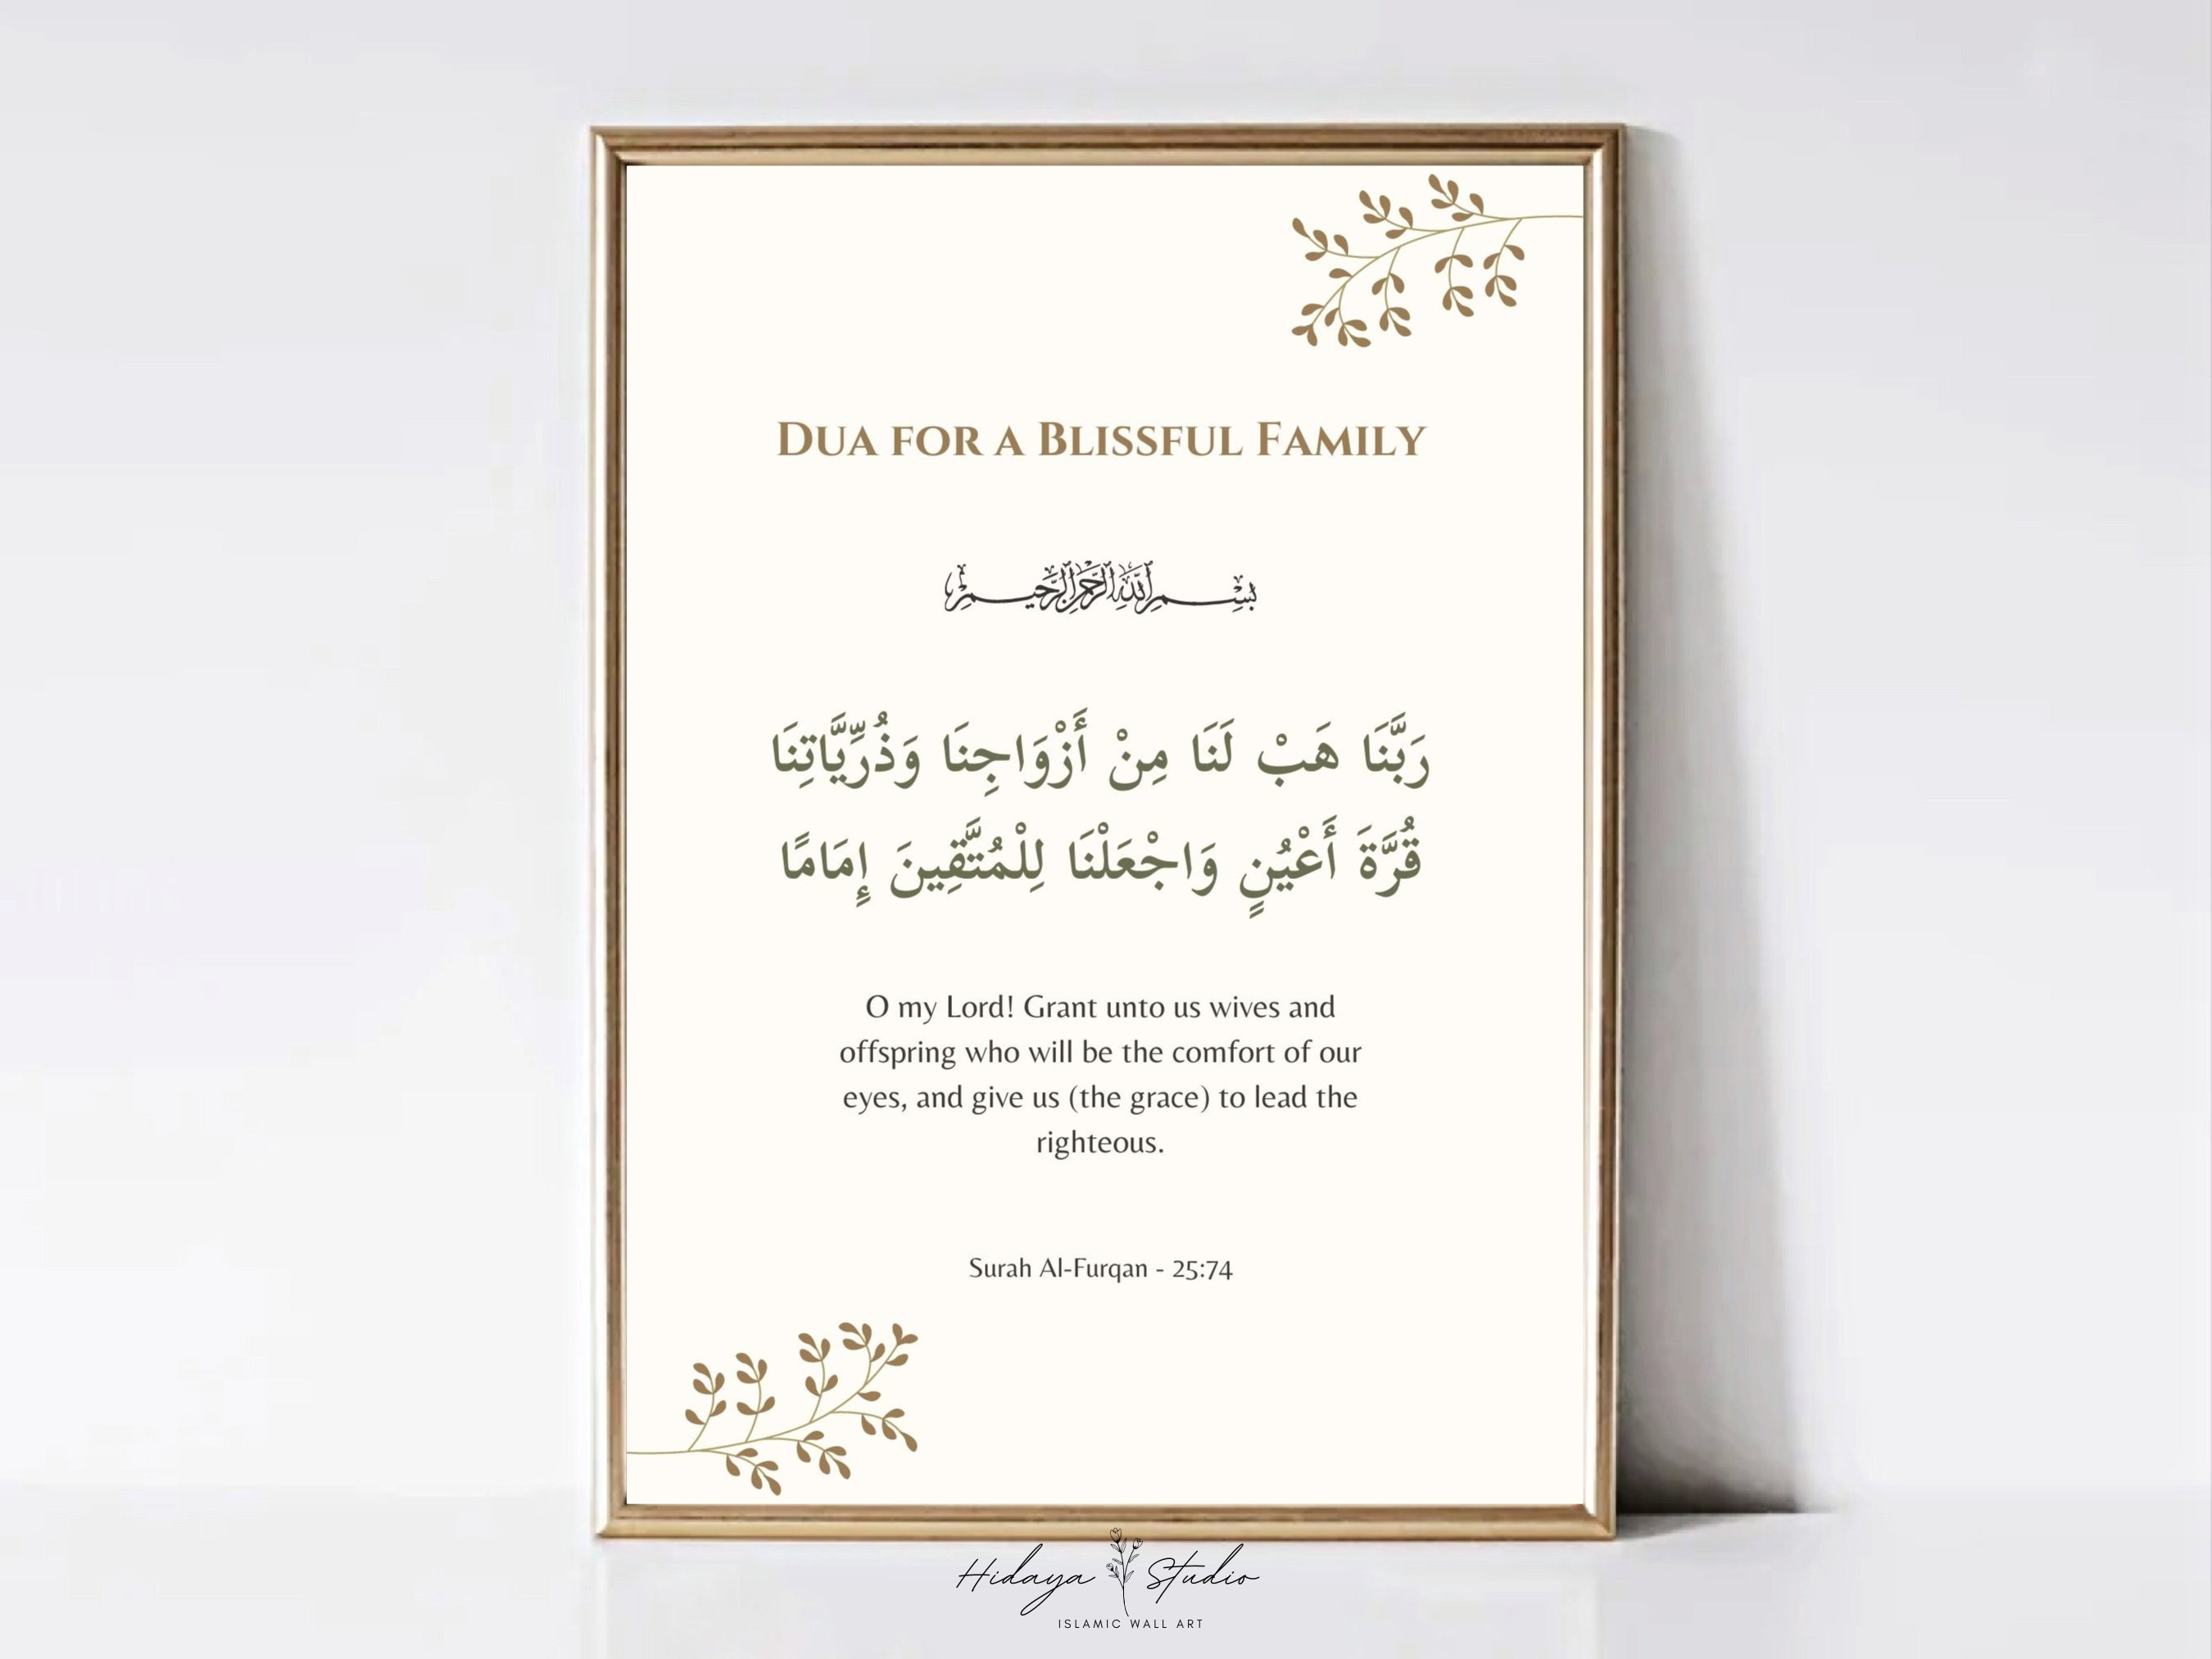 Dua for a Blissful Family
بِسْمِ اللَّهِ الرَّحْمَنِ الرَّحِيمِ
رَبَّنَا هَبْ لَنَا مِنْ أَزْوَاجِنَا وَذُرِّيَّاتِنَا
قُرَّةَ أَعْيُنٍ وَاجْعَلْنَا لِلْمُتَّقِينَ إِمَامًا
O my Lord! Grant unto us wives and
offspring who will be the comfort of our
eyes, and give us (the grace) to lead the
righteous.
Surah Al-Furqan - 25:74
Hidaya Studio
ISLAMIC WALL ART